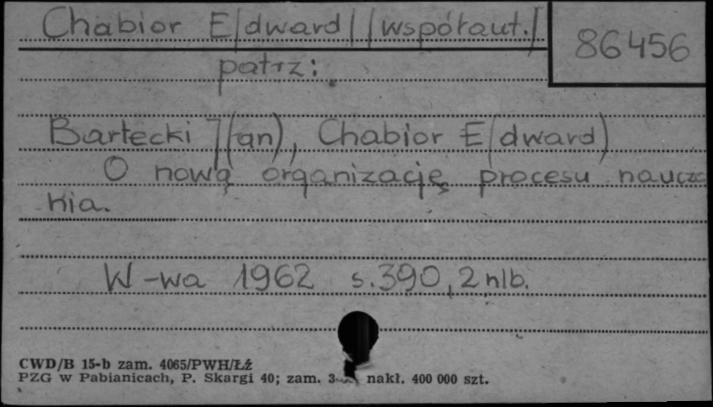 Chabior E/dward/ /współaut./
86456
patrz:
Bartecki J(an), Chabior E(dward)
O nową organizację procesu naucza
nia.
W-wa 1962 s. 390, 2 nlb.
CWD/B 15-b zam. 4065/PWH/ŁŹ
PZG w Pabianicach, P. Skargi 40; zam. nakł. 400 000 szt.